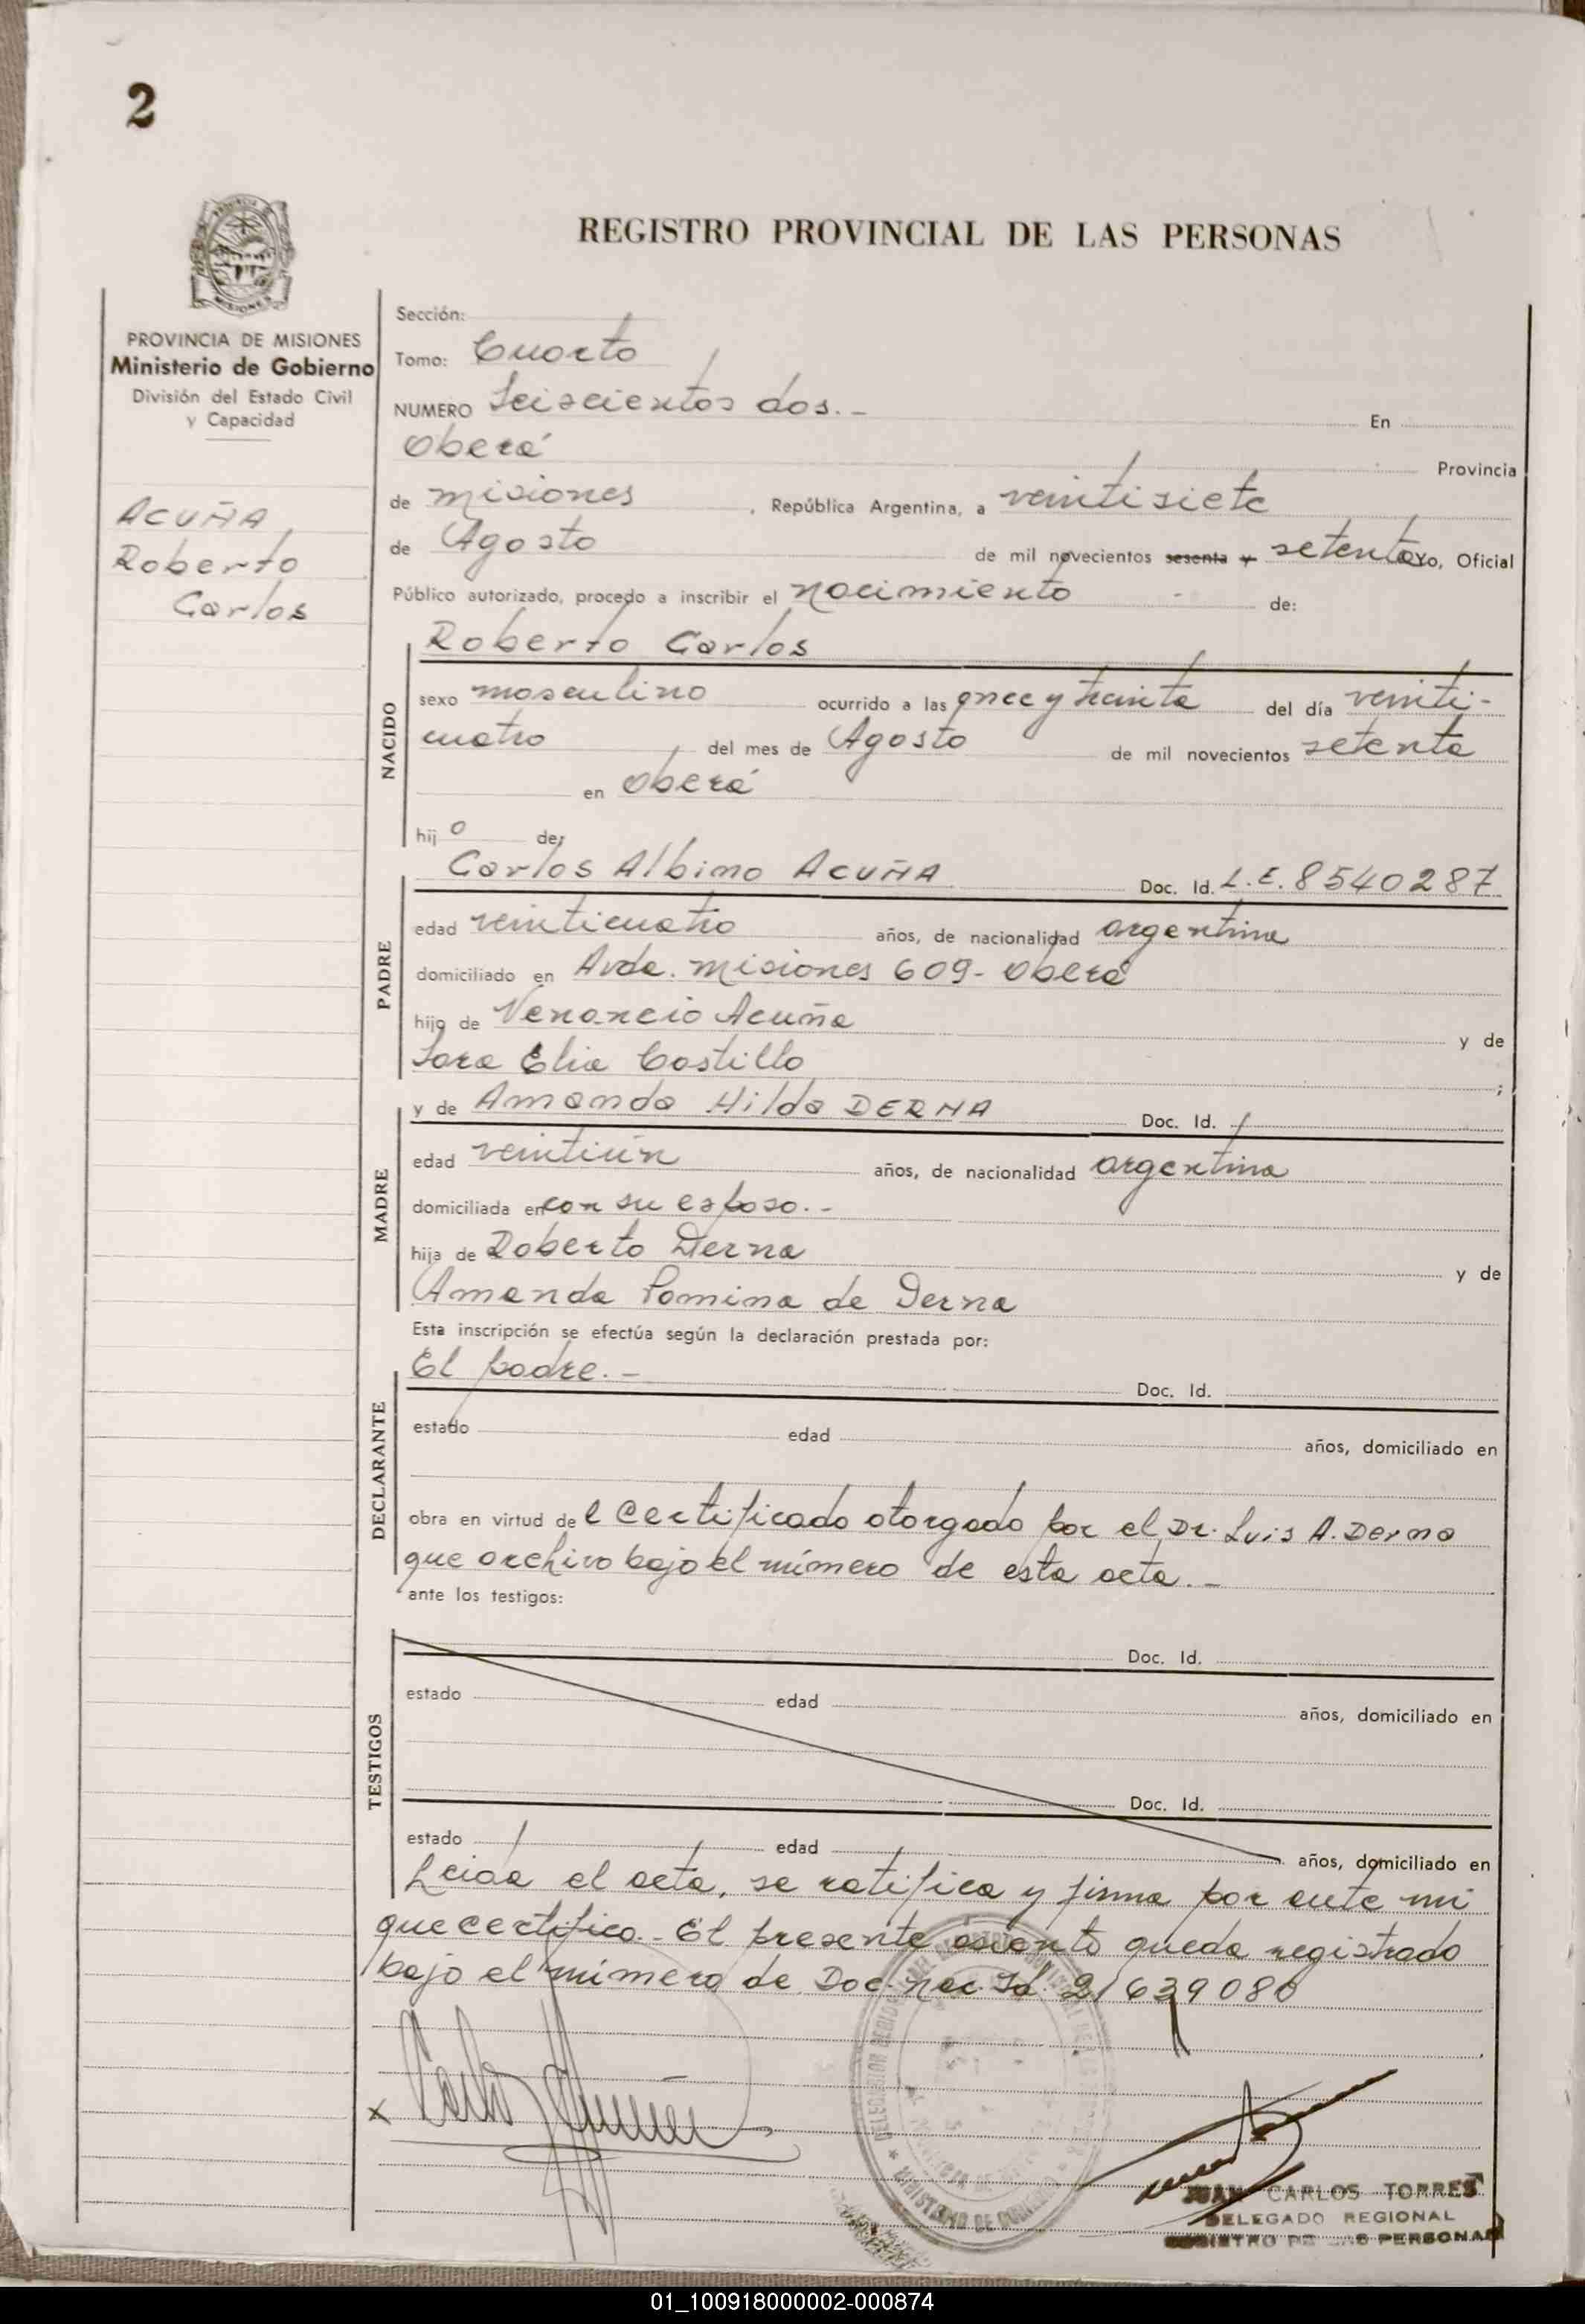 2
REGISTRO PROVINCIAL DE LAS PERSONAS
PROVINCIA DE MISIONES
Ministerio de Gobierno
División del Estado Civil
y Capacidad
ACUÑA
Roberto
Carlos
Sección:
Tomo: Cuarto
NUMERO Seiscientos dos.- En
Oberá Provincia
de misiones, República Argentina, a veintisiete
de Agosto de mil novecientos sesenta y setenta Yo, Oficial
Público autorizado, procedo a inscribir el nacimiento de:
Roberto Carlos
NACIDO
sexo masculino ocurrido a las once y treinta del día veinti-
cuatro del mes de Agosto de mil novecientos setenta
en Oberá
hijo de:
Carlos Albino ACUÑA Doc. Id. L.E. 8540287
PADRE
edad veinticuatro años, de nacionalidad argentina
domiciliado en Avda. misiones 609- Oberá
hijo de Venancio Acuña y de
Sara Elia Castillo ;
y de Amanda Hilda DERNA Doc. Id. /
MADRE
edad veintiún años, de nacionalidad argentina
domiciliada en con su esposo.-
hija de Roberto Derna y de
Amanda Pomina de Derna
Esta inscripción se efectúa según la declaración prestada por:
El padre.- Doc. Id.
DECLARANTE
estado edad años, domiciliado en
obra en virtud del certificado otorgado por el Dr. Luis A. Derna
que archivo bajo el número de esta acta.-
ante los testigos:
Doc. Id.
TESTIGOS
estado edad años, domiciliado en
Doc. Id.
estado edad años, domiciliado en
Leida el acta, se ratifica y firma por ante mi
que certifico.- El presente asiento queda registrado
bajo el número de Doc. nac. Id. 21639080
x Carlos Acuña
MINISTERIO DE GOBIERNO
JUAN CARLOS TORRES
DELEGADO REGIONAL
REGISTRO DE LAS PERSONAS
01_100918000002-000874